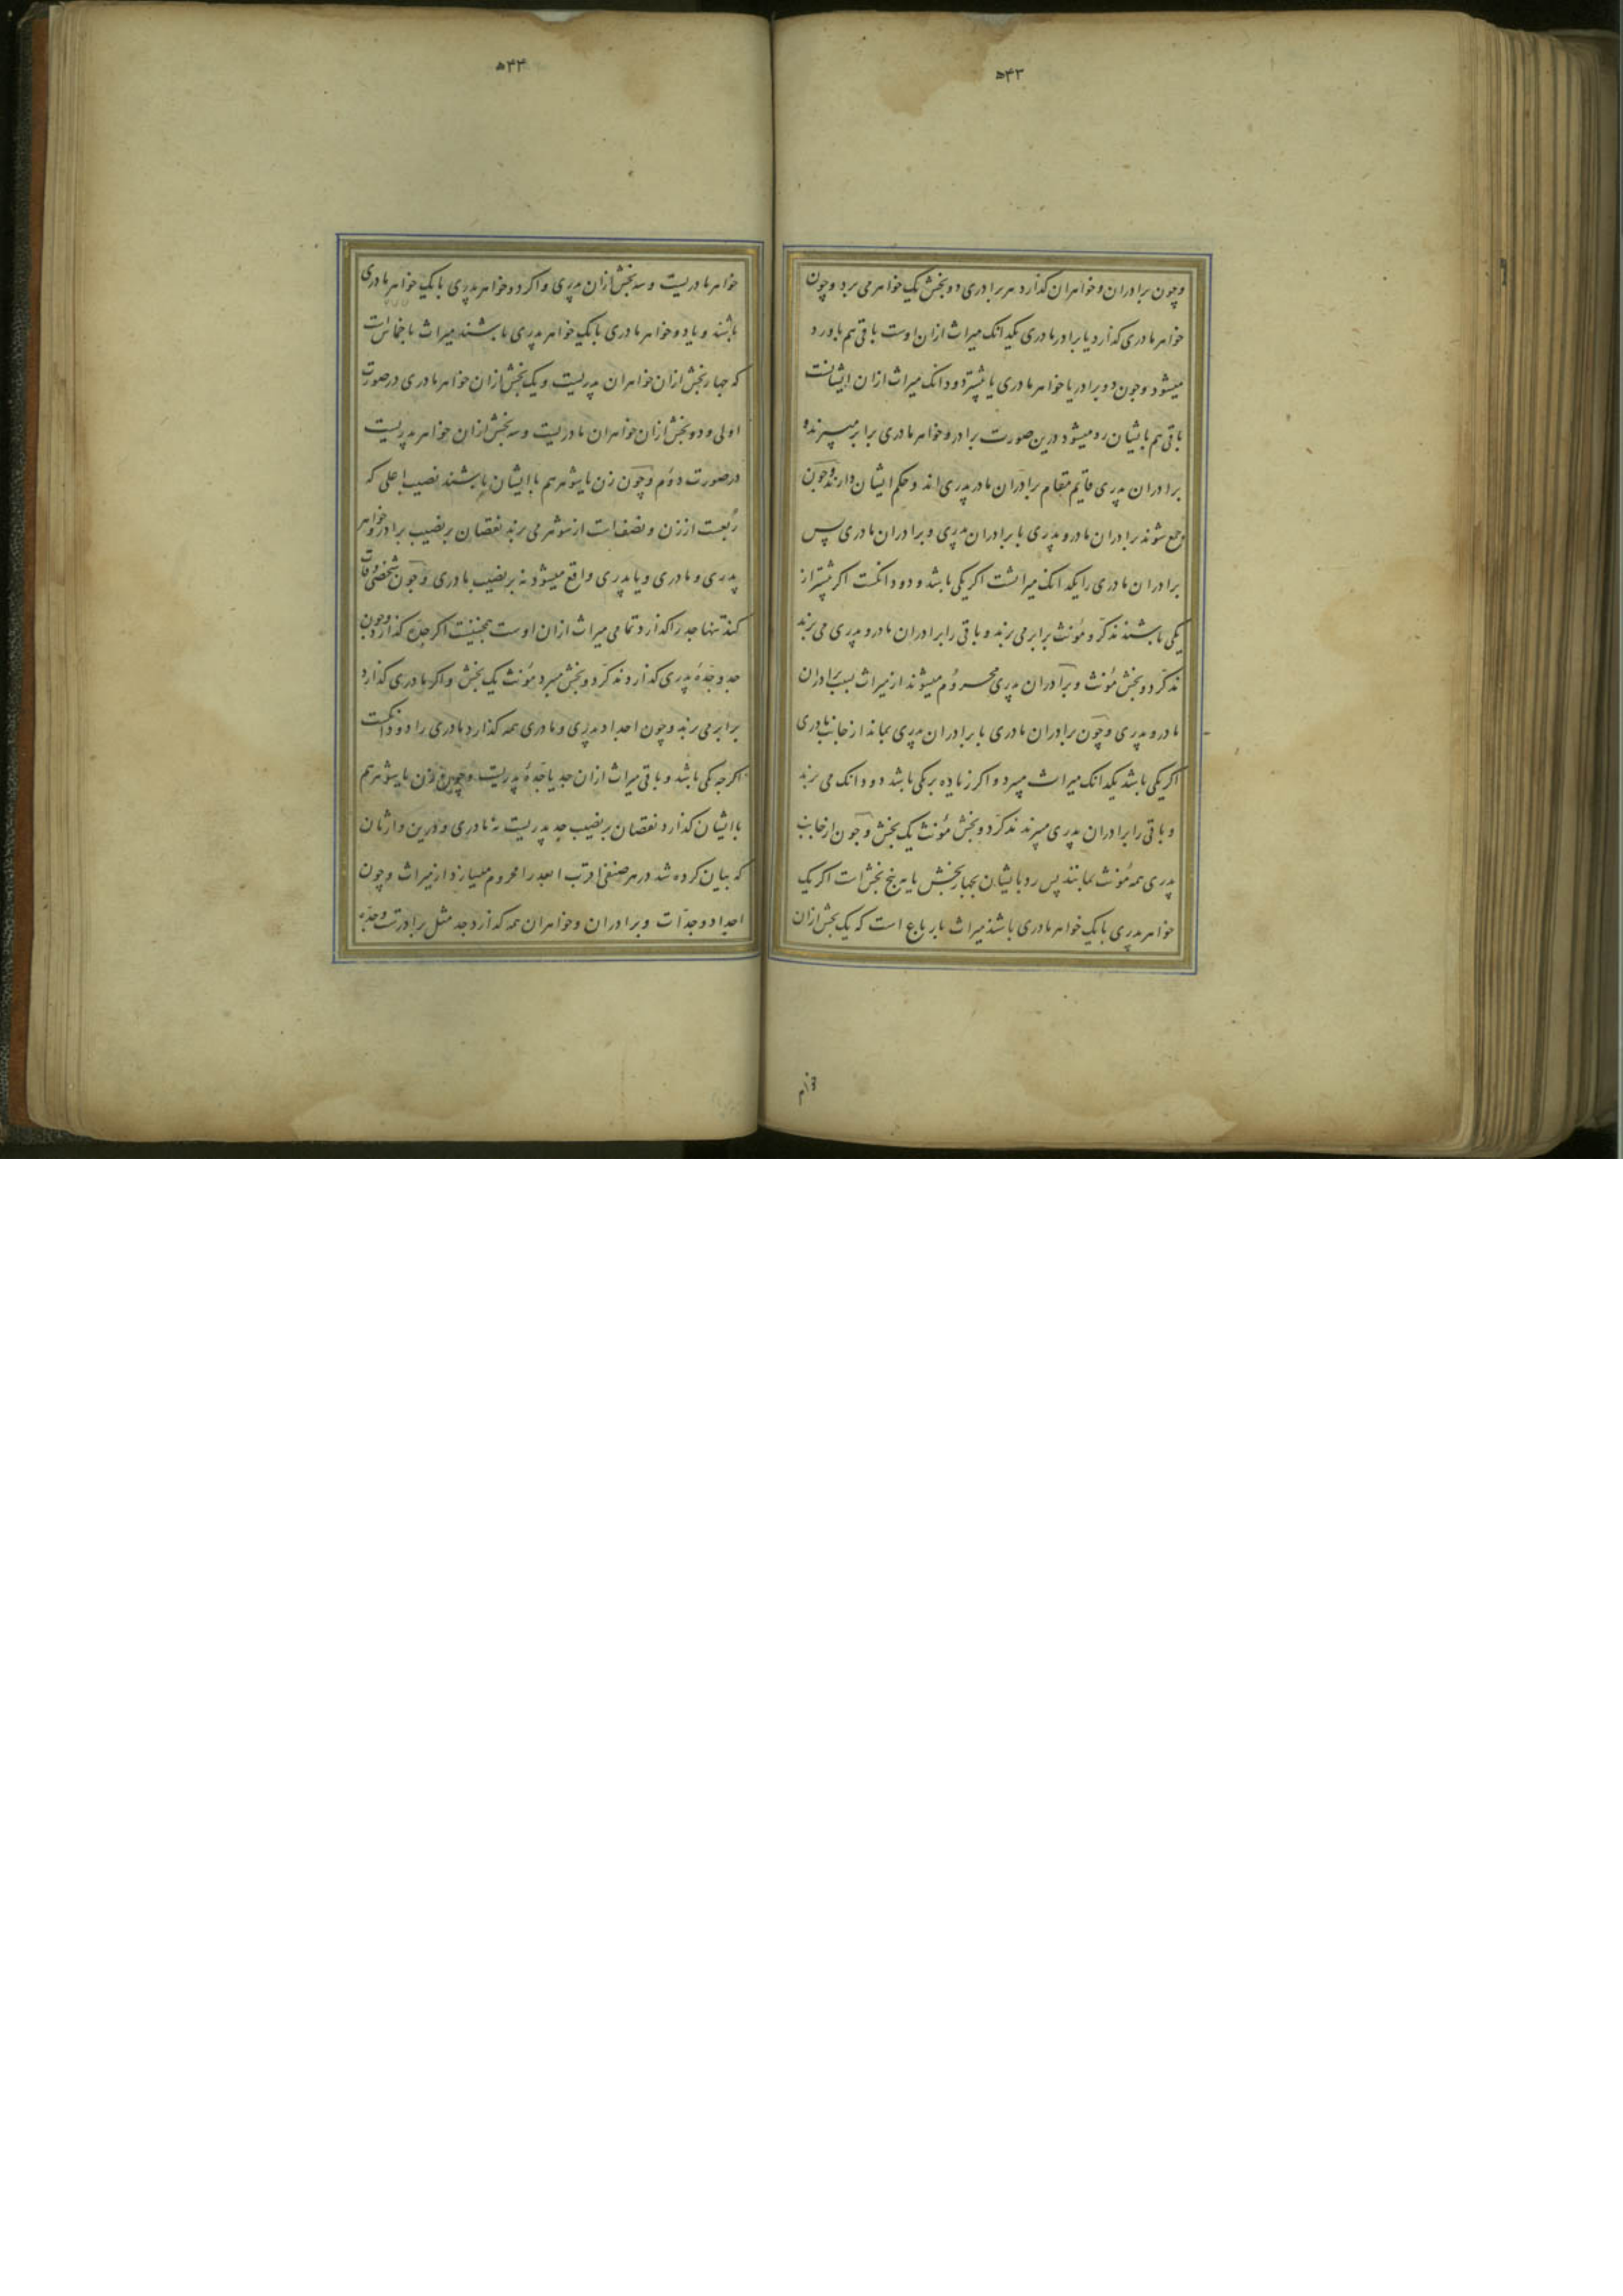 ۵۴۳
وچون برادران و خواهران کذارد هر برادری دو بخش یک خواهر می برد وچون
خواهر مادری کذارد یا برادر مادری یکدانک میراث ازان اوست باقی هم باو رد
میشود وچون دو برادر یا خواهر مادری یا بیشتر دودانک میراث ازان ایشانست
باقی هم بایشان رد میشود درین صورت برادر و خواهر مادری برابر میبرند و
برادران پدری قایم مقام برادران مادر پدری اند و حکم ایشان دارند وچون
جمع شوند برادران مادر و پدری با برادران پدری و برادران مادری پس
برادران مادری را یکدانک میراثست اکر یکی باشد و دودانکست اکر بیشتر از
یکی باشند مذکّر و مؤنث برابر می برند و باقی را برادران مادر و پدری می برند
مذکّر دو بخش مؤنث و برادران پدری محروم میشوند از میراث بسبب برادران
مادر و پدری وچون برادران مادری با برادران پدری بماند از جانب مادری
اکر یکی باشد یکدانک میراث میبرد و اکر زیاده بر یکی باشد دودانک می برند
و باقی را برادران پدری میبرند مذکّر دو بخش مؤنث یک بخش وچون از جانب
پدری همه مؤنث بمانند پس رد بایشان بچهار بخش یا به پنج بخش است اکر یک
خواهر پدری با یک خواهر مادری باشد میراث بارباع است که یک بخش ازان
۵۴۴
خواهر مادریست و سه بخش ازان پدری و اکر دو خواهر پدری با یک خواهر مادری
باشند و یا دو خواهر مادری با یک خواهر پدری باشند میراث باخماس است
که چهار بخش ازان خواهران پدریست و یک بخش ازان خواهر مادری در صورت
اولی و دو بخش ازان خواهران مادریست و سه بخش ازان خواهر پدریست
در صورت دوم وچون زن یا شوهر هم با ایشان باشند نصیب اعلی که
ربعست از زن و نصف است از شوهر می برند نقصان بر نصیب برادر و خواهر
پدری و مادری و یا پدری واقع میشود نه بر نصیب مادری وچون شخصی وفات
کند تنها جد را کذارد تمامی میراث ازان اوست همچنینست اکر جدّه کذارد وچون
جد و جدّهٔ پدری کذارد مذکّر دو بخش میبرد مؤنث یک بخش و اکر مادری کذارد
برابر می برند وچون اجداد پدری و مادری همه کذارد مادری را دودانکست
اکرچه یکی باشد و باقی میراث ازان جد یا جدّهٔ پدریست وچون زن یا شوهر هم
با ایشان کذارد نقصان بر نصیب جد پدریست نه مادری و درین وارثان
که بیان کرده شد در هر صنفی اقرب ابعد را محروم میسازد از میراث وچون
اجداد و جدّات و برادران و خواهران همه کذارد جد مثل برادرست و جدّه